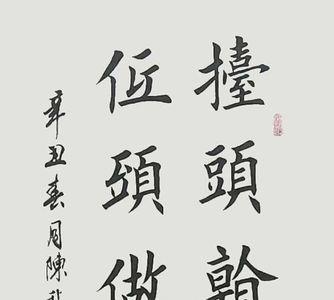 擡頭幹
低頭做
辛丑春月陳